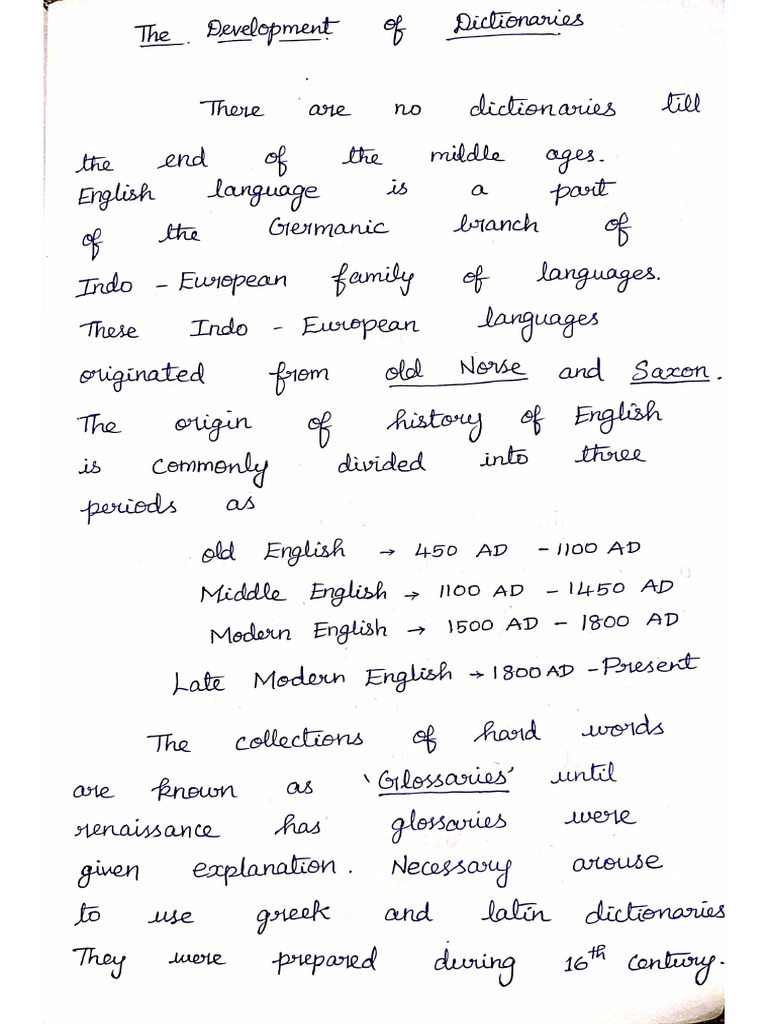 The Development of Dictionaries
There are no dictionaries till
the end of the middle ages.
English language is a part
of the Germanic branch of
Indo - European family of languages.
These Indo - European languages
originated from old Norse and Saxon.
The origin of history of English
is commonly divided into three
periods as
old English → 450 AD - 1100 AD
Middle English → 1100 AD - 1450 AD
Modern English → 1500 AD - 1800 AD
Late Modern English → 1800 AD - Present
The collections of hard words
are known as 'Glossaries' until
renaissance has glossaries were
given explanation. Necessary arouse
to use greek and latin dictionaries
They were prepared during 16th century.